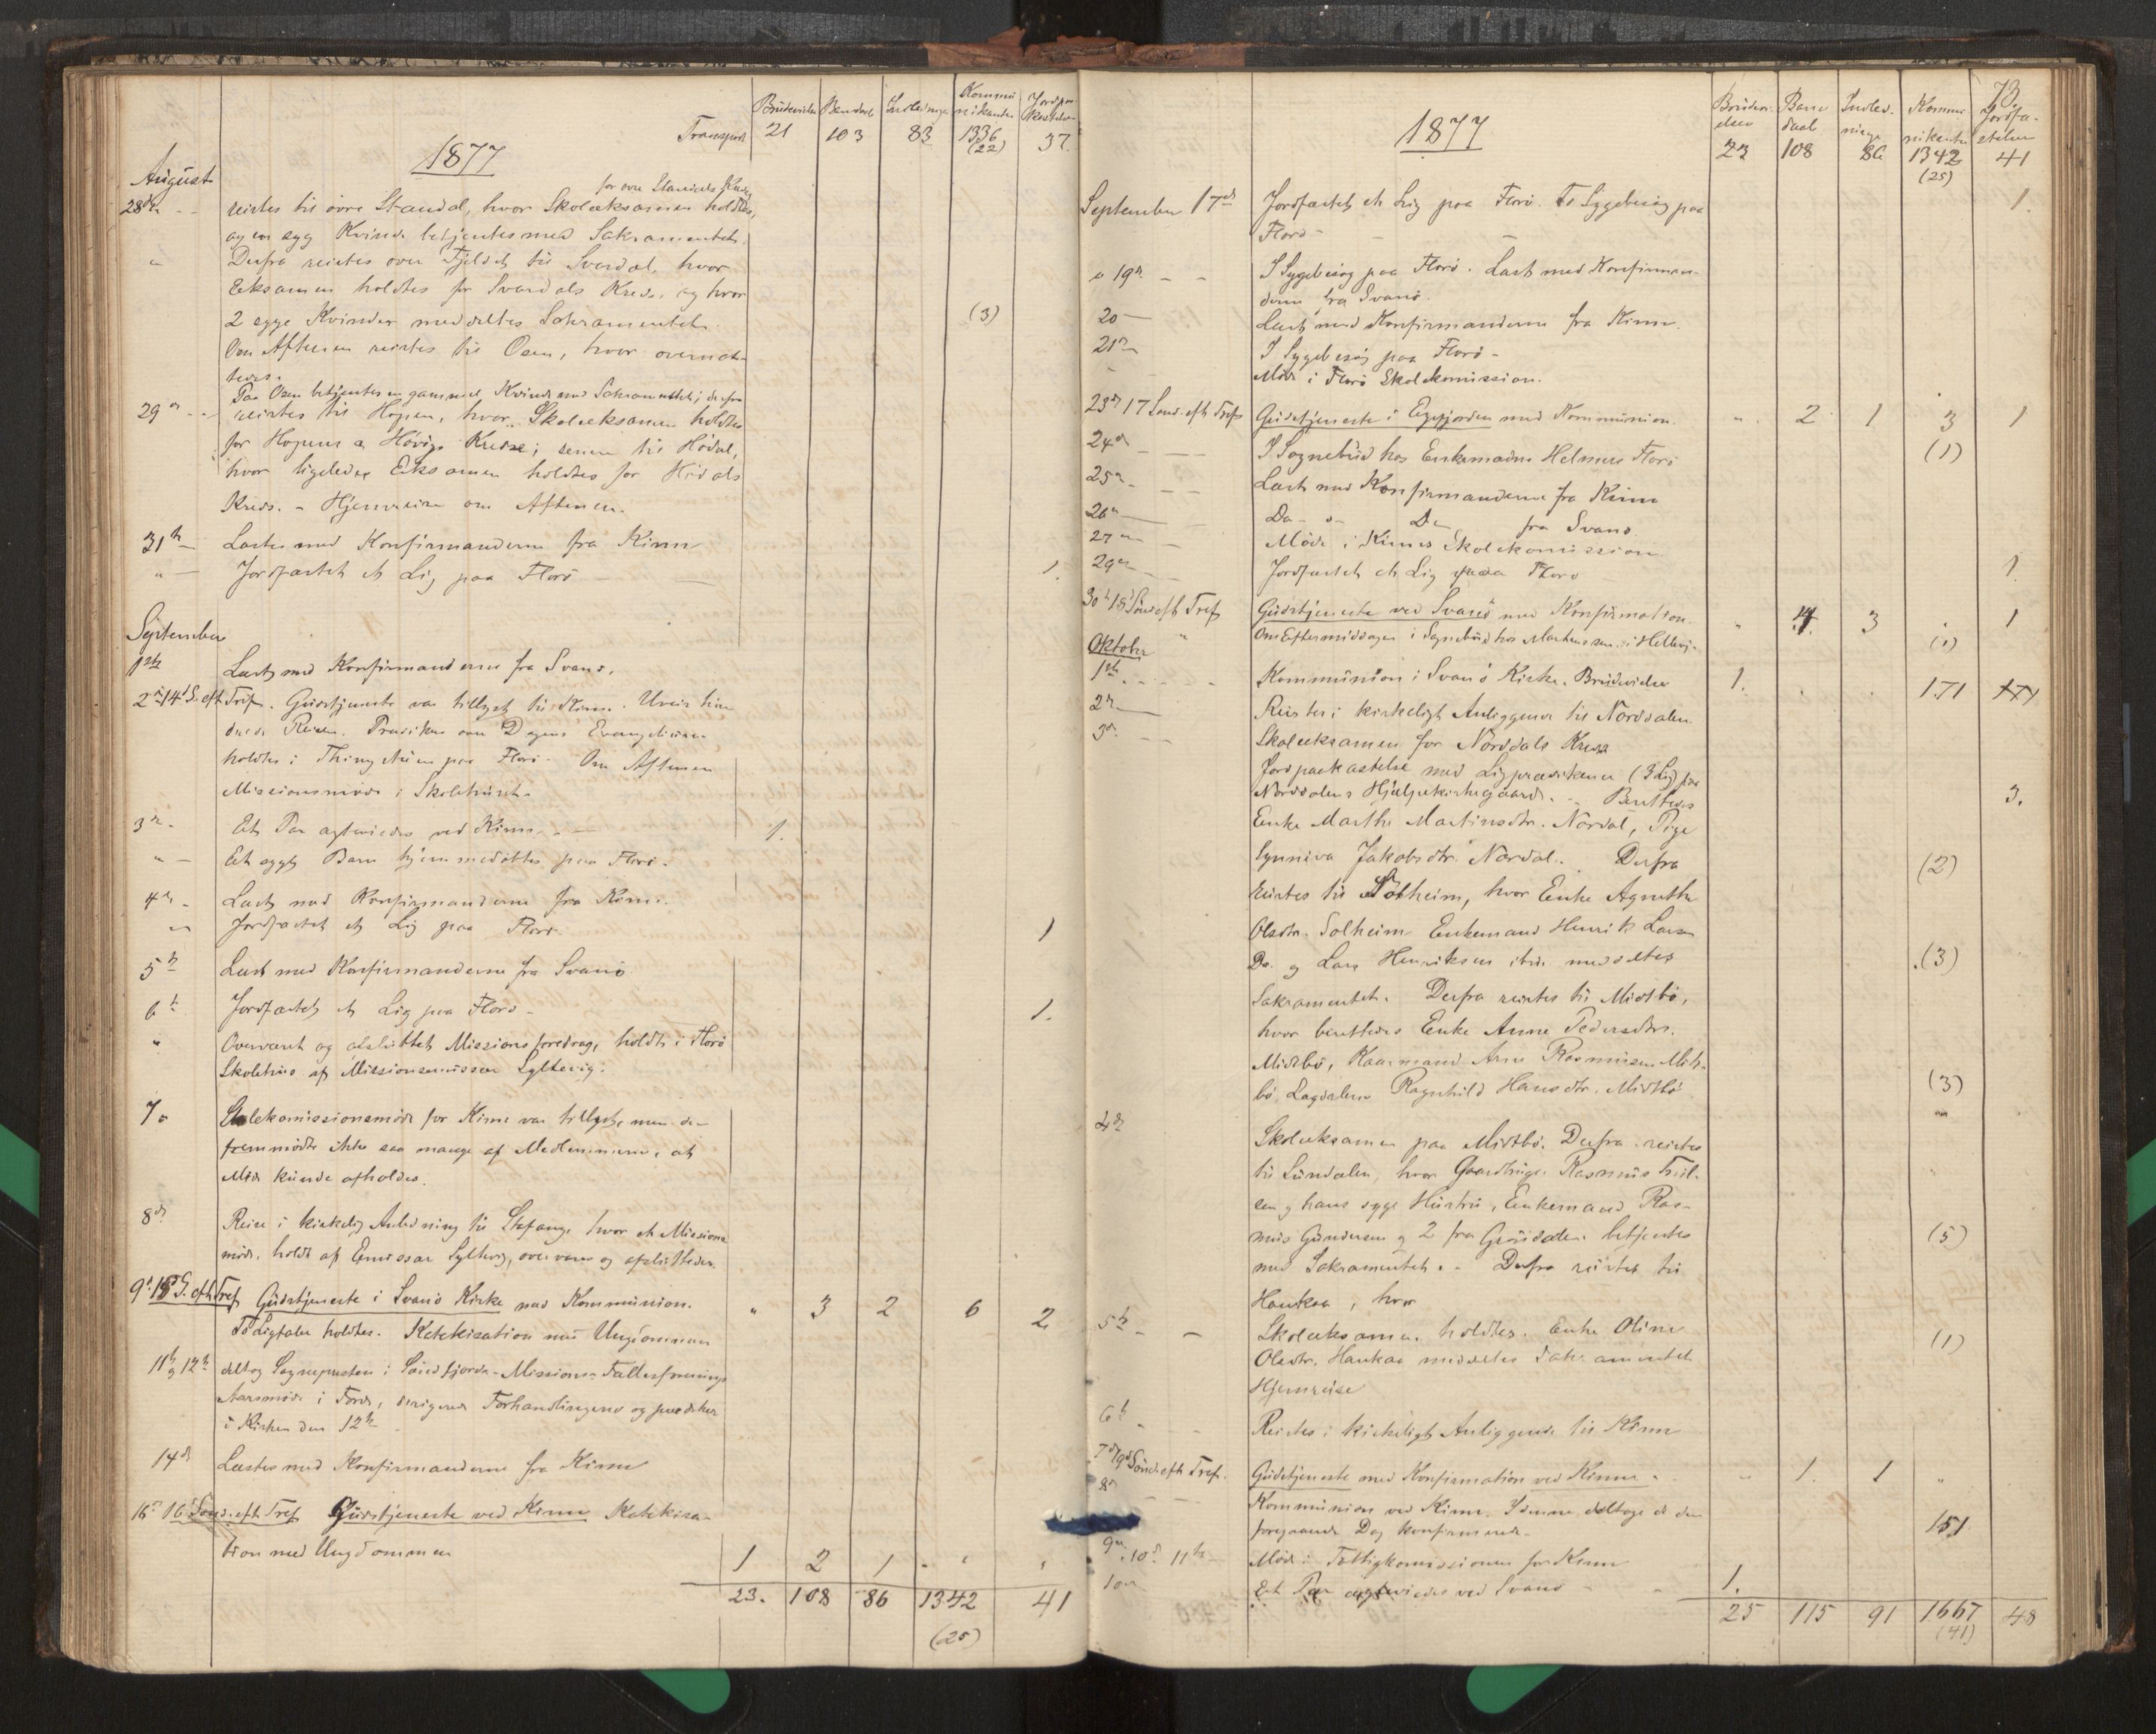 Brudevielser Barnedaab Indledninge Kommunikanter Jordpaakastelser
Transport 21 103 83 1336 37
(22)
1877
August
for øvre Standals Kreds
28de reistes til øvre Standal, hvor Skoleeksamen holdtes,
og en syg Kvinde betjentes med Sakramentet.
" Derfra reistes over Fjeldet til Svardal, hvor
Eksamen holdtes for Svardals Kreds, og hvor
2 syge Kvinder meddeltes Sakramentet. (3)
Om Aftenen reistes til Osen, hvor overnat-
tedes.
Paa Osen betjentes en gammel Kvinde med Sakramentet; derfra
29de reistes til Hopen, hvor Skoleeksamen holdtes
for Hopens og Høvigs Kredse; senere til Hödal,
hvor ligeledes Eksamen holdtes for Hödals
Kreds. - Hjemreise om Aftenen.
31te Læstes med Konfirmanderne fra Kinn
" Jordfæstet et Lig paa Florö 1.
September
1ste Læst med Konfirmanderne fra Svanö.
2den 14 S. eft. Tref. Gudstjeneste var tillyst til Kinn. Uveir hin-
drede Reisen. Prædiken over Dagens Evangelium
holdtes i Thingstuen paa Florö. Om Aftenen
Missionsmöde i Skolehuset.
3de Et Par ægteviedes ved Kinn. 1.
" Et sygt Barn hjemmedöbtes paa Florö.
4de Læst med Konfirmanderne fra Kinn.
" Jordfæstet et Lig paa Florö. 1
5te Læst med Konfirmanderne fra Svanö
6te Jordfæstet et Lig paa Florö. 1.
" Overværet og afsluttet Missionsforedrag, holdt i Florö
Skolehus af Missionsemissær Syltevig.
7de Skolekomissionsmöde for Kinn var tillyst, men der
fremmödte ikke saa mange af Medlemmerne, at
Möde kunde afholdes.
8de Reise i kirkelig Anledning til Stefange hvor et Missions-
möde, holdt af Emissær Syltevig, overværedes og afsluttedes.
9de 15 S. eft. Tref Gudstjeneste i Svanö Kirke med Kommunion. " 3 2 6 2
To Ligtaler holdtes. Katekisation med Ungdommen
11te og 12te deltog Sognepresten i Söndfjords-Missions-Fællesforenings
Aarsmöde i Förde, dirigerede Forhandlingerne og prædikede
i Kirken den 12te
14de Læstes med Konfirmanderne fra Kinn
16de 16 Sönd. eft. Tref Gudstjeneste ved Kinn Katekisa-
tion med Ungdommen 1 2 1 . . .
23. 108 86 1342 41
(25)
73.
Brudevielser Barnedaab Indledninge Kommunikanter Jordfæstelser
1877
23 108 86 1342 41
(25)
September 17de Jordfæstet et Lig paa Florö. To Sygebesög paa 1.
Florö
" 19de I Sygebesög paa Florö. Læst med Konfirman-
derne fra Svanö.
20 Læst med Konfirmanderne fra Kinn.
21de I Sygebesög paa Florö -
Möde i Florö Skolekomission.
23de 17 Sönd. eft. Tref Gudstjeneste i Eggefjorden med Kommunion. " 2 1 3 1
24de I Sognebud hos Enkemadme Helmers Florö (1)
25de Læst med Konfirmanderne fra Kinn
26de Do - Do fra Svanö
27de Möde i Kinns Skolekomission.
29de Jordfæstet et Lig paa Florö 1.
30te 18 Sönd eft Tref Gudstjeneste ved Svanö med Konfirmation. " 4. 3 . 1
" Om Eftermiddagen i Sognebud hos i (1)
Oktober
1ste Kommunion i Svanö Kirke. Brudevielse 1. . . 171
2den Reistes i kirkeligt Anliggende til Norddalen.
3de Skoleeksamen for Norddals Kreds
Jordpaakastelse med Ligprædikener (3 Lig) paa
Norddalens Hjælpekirkegaard. - Berettedes 3.
Enke Marthe Martinsdtr. Nordal, Pige
Synniva Jakobsdtr. Nordal. Derfra (2)
reistes til Solheim, hvor Enke Agnethe
Olsdtr. Solheim Enkemand Henrik Larsen
Do. og Lars Henriksen ibid. meddeltes (3)
Sakramentet. Derfra reistes til Midtbö,
hvor berettedes Enke Anne Pedersdtr.
Midtbö, Kaarmand Arne Rasmussen Midt-
bö, Lægdslem Ragnhild Hansdtr. Midtbö (3)
4de Skoleeksamen paa Midtbö. Derfra reistes
til Sundalen, hvor Gaardbruger Rasmus
sen og hans syge Hustru, Enkemand Ras-
mus Gundersen og 2 fra Gröndalen betjentes (5)
med Sakramentet. - Derfra reistes til
Haukaa, hvor
5te Skoleeksamen holdtes. Enke Oline (1)
Olsdtr. Haukaa meddeltes Sakramentet
Hjemreise
6te Reistes i kirkeligt Anliggende til Kinn
7de 19de Sönd. eft. Tref. Gudstjeneste med Konfirmation ved Kinn. " 1. 1 "
8de Kommunion ved Kinn. I denne deltoge de den
foregaaende Dag konfirmerede. 151
9de, 10de 11te Möde i Fattigkomissionen for Kinn
10de Et Par ægteviedes ved Svanö 1.
25 115 91 1667 48
(41)